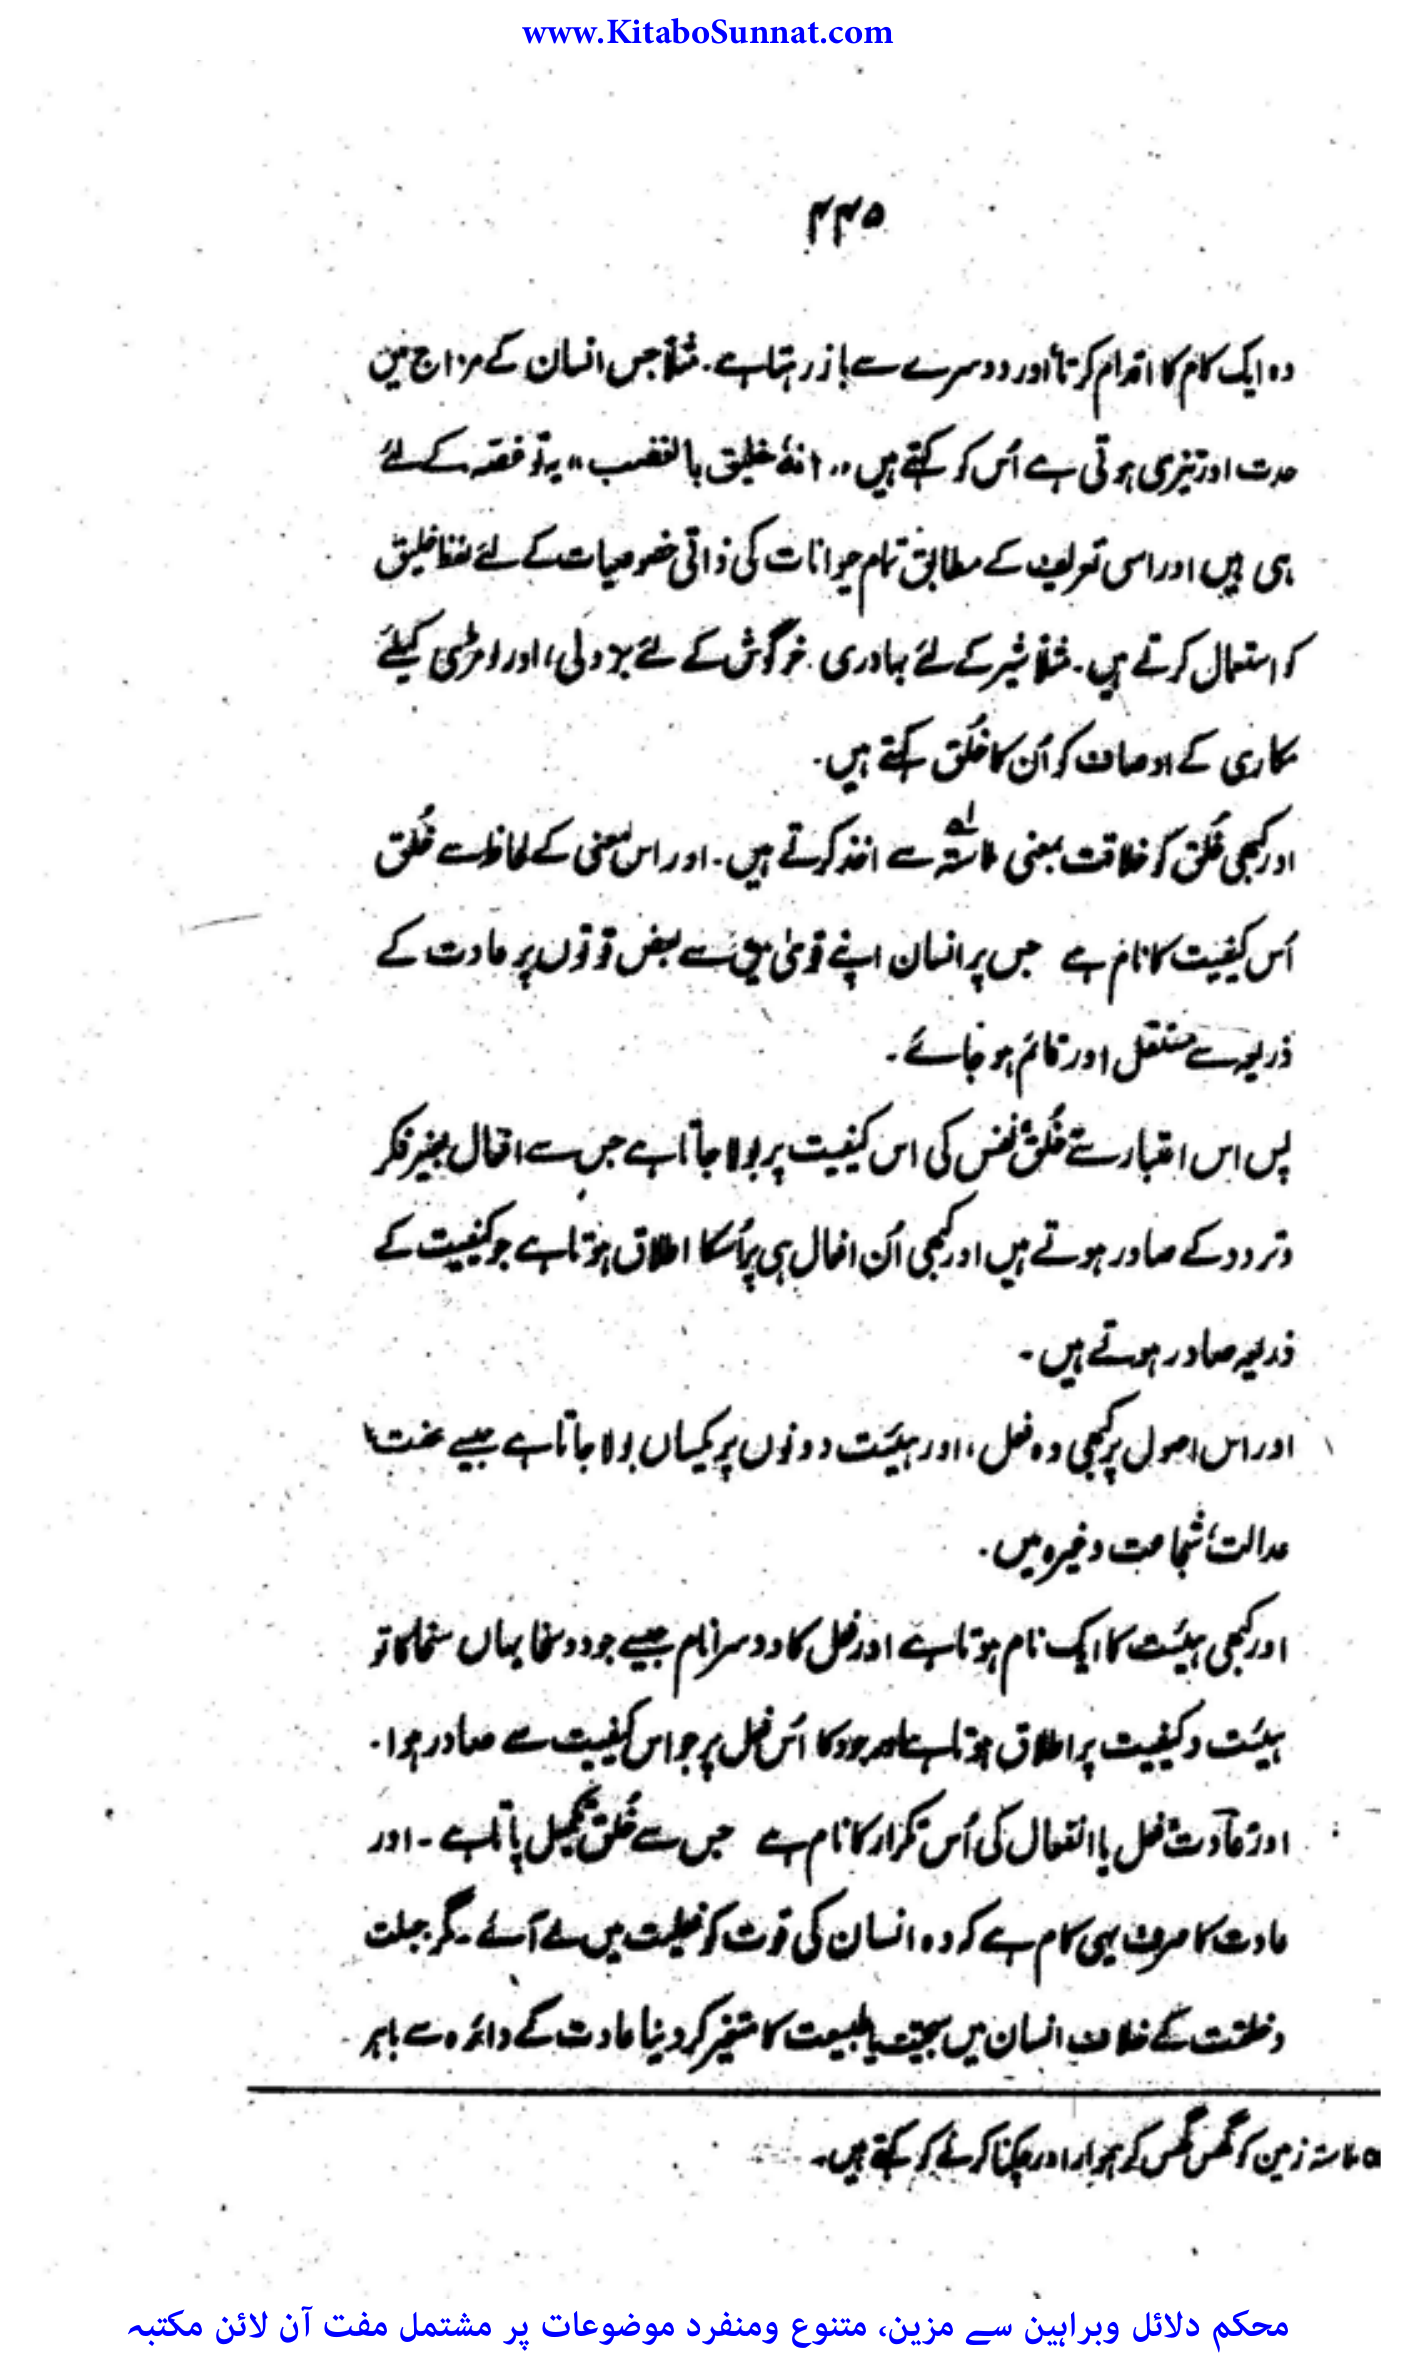 www.KitaboSunnat.com
۴۴۵
وہ ایک کام کا اقدام کرتا اور دوسرے سے باز رہتا ہے۔ مثلاً جس انسان کے مزاج میں
حدت اور تیزی ہوتی ہے اُس کو کہتے ہیں "انہٗ خلیق بالغضب" یہ تو غصّہ کے لئے
ہی ہیں اور اسی تعریف کے مطابق تمام حیوانات کی ذاتی خصوصیات کے لئے لفظ خلیق
کو استعمال کرتے ہیں۔ مثلاً شیر کے لئے بہادری، خرگوش کے لئے بزدلی، اور لومڑی کیلئے
مکاری کے اوصاف کو اُن کا خُلق کہتے ہیں۔
اور کبھی خُلق کو خلاقت بمعنی ملاستہ لہ سے اخذ کرتے ہیں۔ اور اس معنی کے لحاظ سے خُلق
اُس کیفیت کا نام ہے جس پر انسان اپنے قویٰ میں سے بعض قوتوں پر عادت کے
ذریعہ سے مستقل اور قائم ہو جائے۔
پس اس اعتبار سے "خُلق" نفس کی اس کیفیت پر بولا جاتا ہے جس سے افعال بغیر فکر
و تردد کے صادر ہوتے ہیں اور کبھی اُن افعال ہی پر اُسکا اطلاق ہوتا ہے جو کیفیت کے
ذریعہ صادر ہوتے ہیں۔
اور اس اصول پر کبھی وہ فعل، اور ہیئت دونوں پر یکساں بولا جاتا ہے جیسے عفت،
عدالت، شجاعت وغیرہ میں۔
اور کبھی ہیئت کا ایک نام ہوتا ہے اور فعل کا دوسرا نام جیسے جود و سخا یہاں سخا کا تو
ہیئت و کیفیت پر اطلاق ہوتا ہے اور جود کا اُس فعل پر جو اس کیفیت سے صادر ہوا۔
اور "عادت" فعل یا انفعال کی اُس تکرار کا نام ہے جس سے خُلق تکمیل پاتا ہے۔ اور
عادت کا صرف یہی کام ہے کہ وہ انسان کی قوت کو فعلیت میں لے آئے۔ مگر جبلت
و خلقت کے خلاف انسان میں سجیت یا طبیعت کا متغیر کر دینا عادت کے دائرہ سے باہر
ملاستہ زمین کو گھس گھس کر ہموار اور چکنا کرنے کو کہتے ہیں۔
محکم دلائل وبراہین سے مزین، متنوع ومنفرد موضوعات پر مشتمل مفت آن لائن مکتبہ